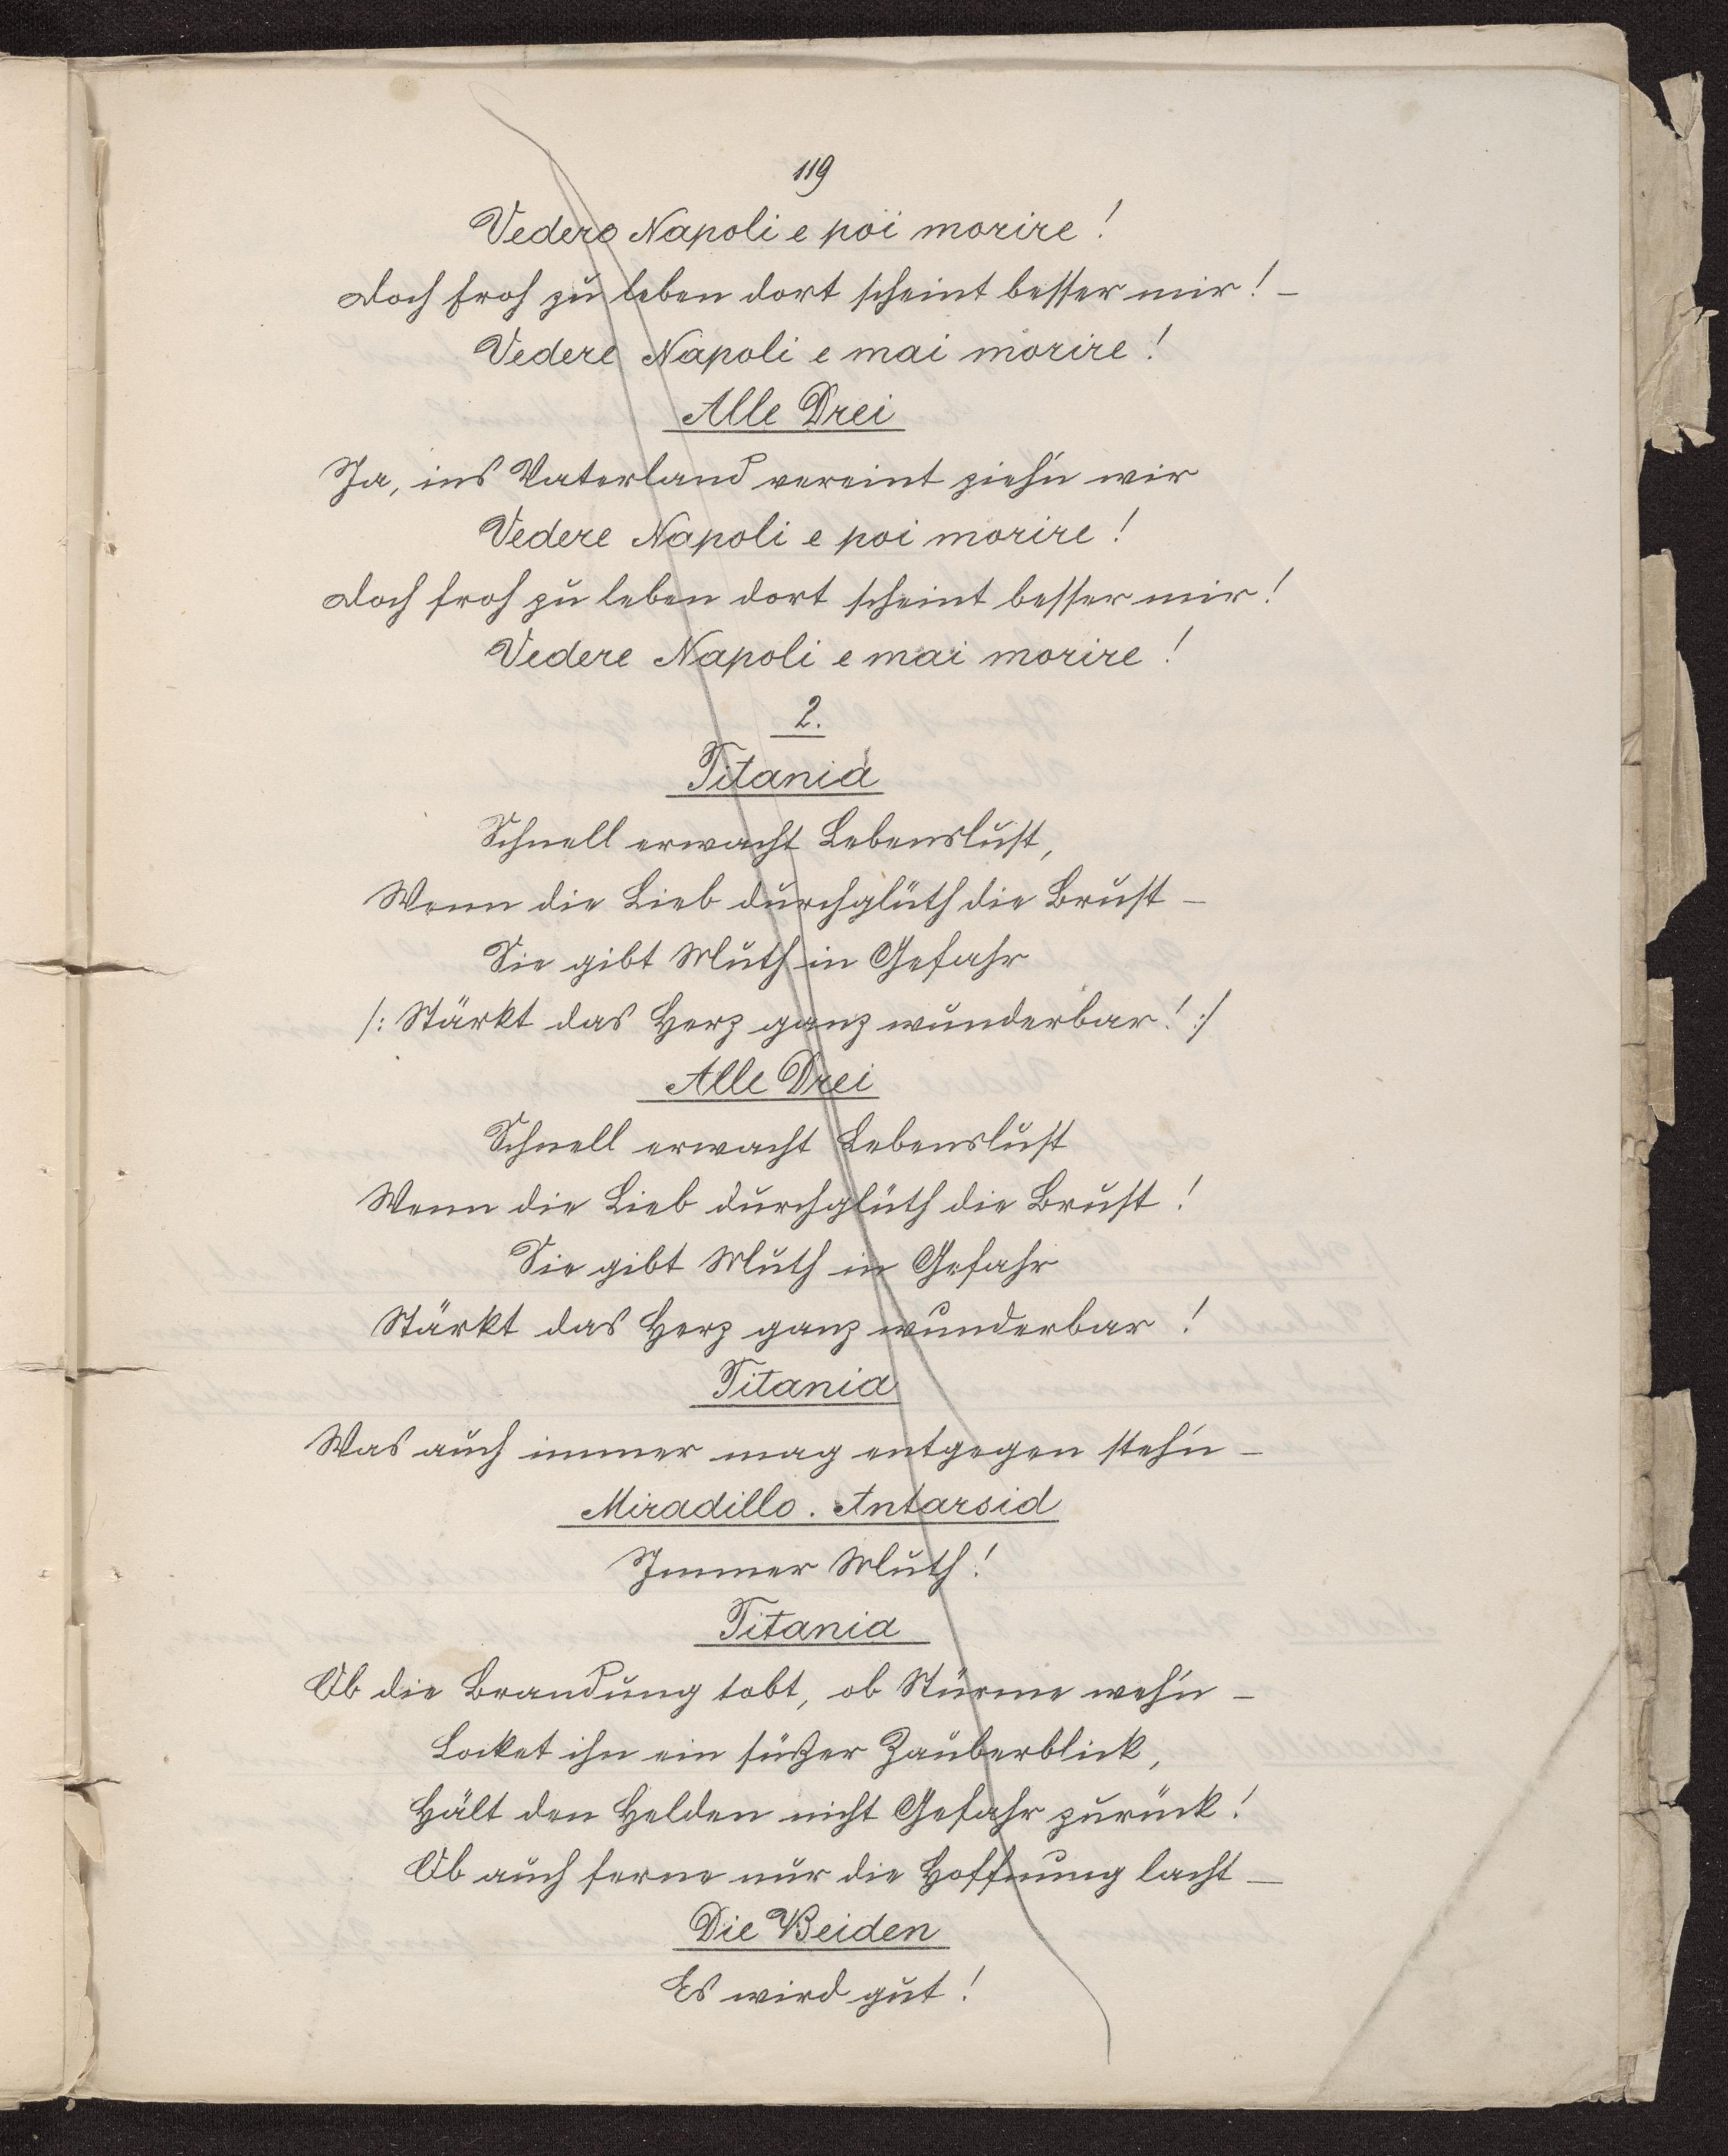 119
Vedere Napoli e poi morire!
Doch froh zu leben dort scheint besser mir! –
Vedere Napoli e mai morire!
Alle Drei
Ja, ins Vaterland vereint zieh'n wir
Vedere Napoli e poi morire!
Doch froh zu leben dort scheint besser mir!
Vedere Napoli e mai morire!
2.
Titania
Schnell erwacht Lebenslust,
Wenn die Lieb durchglüth die Brust –
Sie gibt Muth in Gefahr
/: Stärkt das Herz ganz wunderbar! :/
Alle Drei
Schnell erwacht Lebenslust
Wenn die Lieb durchglüth die Brust!
Sie gibt Muth in Gefahr
Stärkt das Herz ganz wunderbar!
Titania
Was auch immer mag entgegen steh'n –
Miradillo. Antarsid
Immer Muth!
Titania
Ob die Brandung tobt, ob Stürme weh'n –
Locket ihn ein süßer Zauberblick,
Hält den Helden nicht Gefahr zurück!
Ob auch ferne nur die Hoffnung lacht –
Die Beiden
Es wird gut!